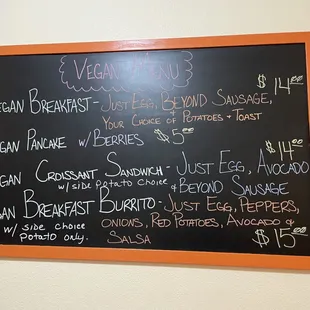 VEGAN MENU
EGAN BREAKFAST - JUST EGG, BEYOND SAUSAGE, $14.00
YOUR CHOICE OF POTATOES + TOAST
EGAN PANCAKE W/BERRIES $5.00
$14.00
GAN CROISSANT SANDWICH - JUST EGG, AVOCADO
w/ side potato choice & BEYOND SAUSAGE
AN BREAKFAST BURRITO - JUST EGG, PEPPERS,
w/ side choice ONIONS, RED POTATOES, AVOCADO &
potato only. SALSA $15.00